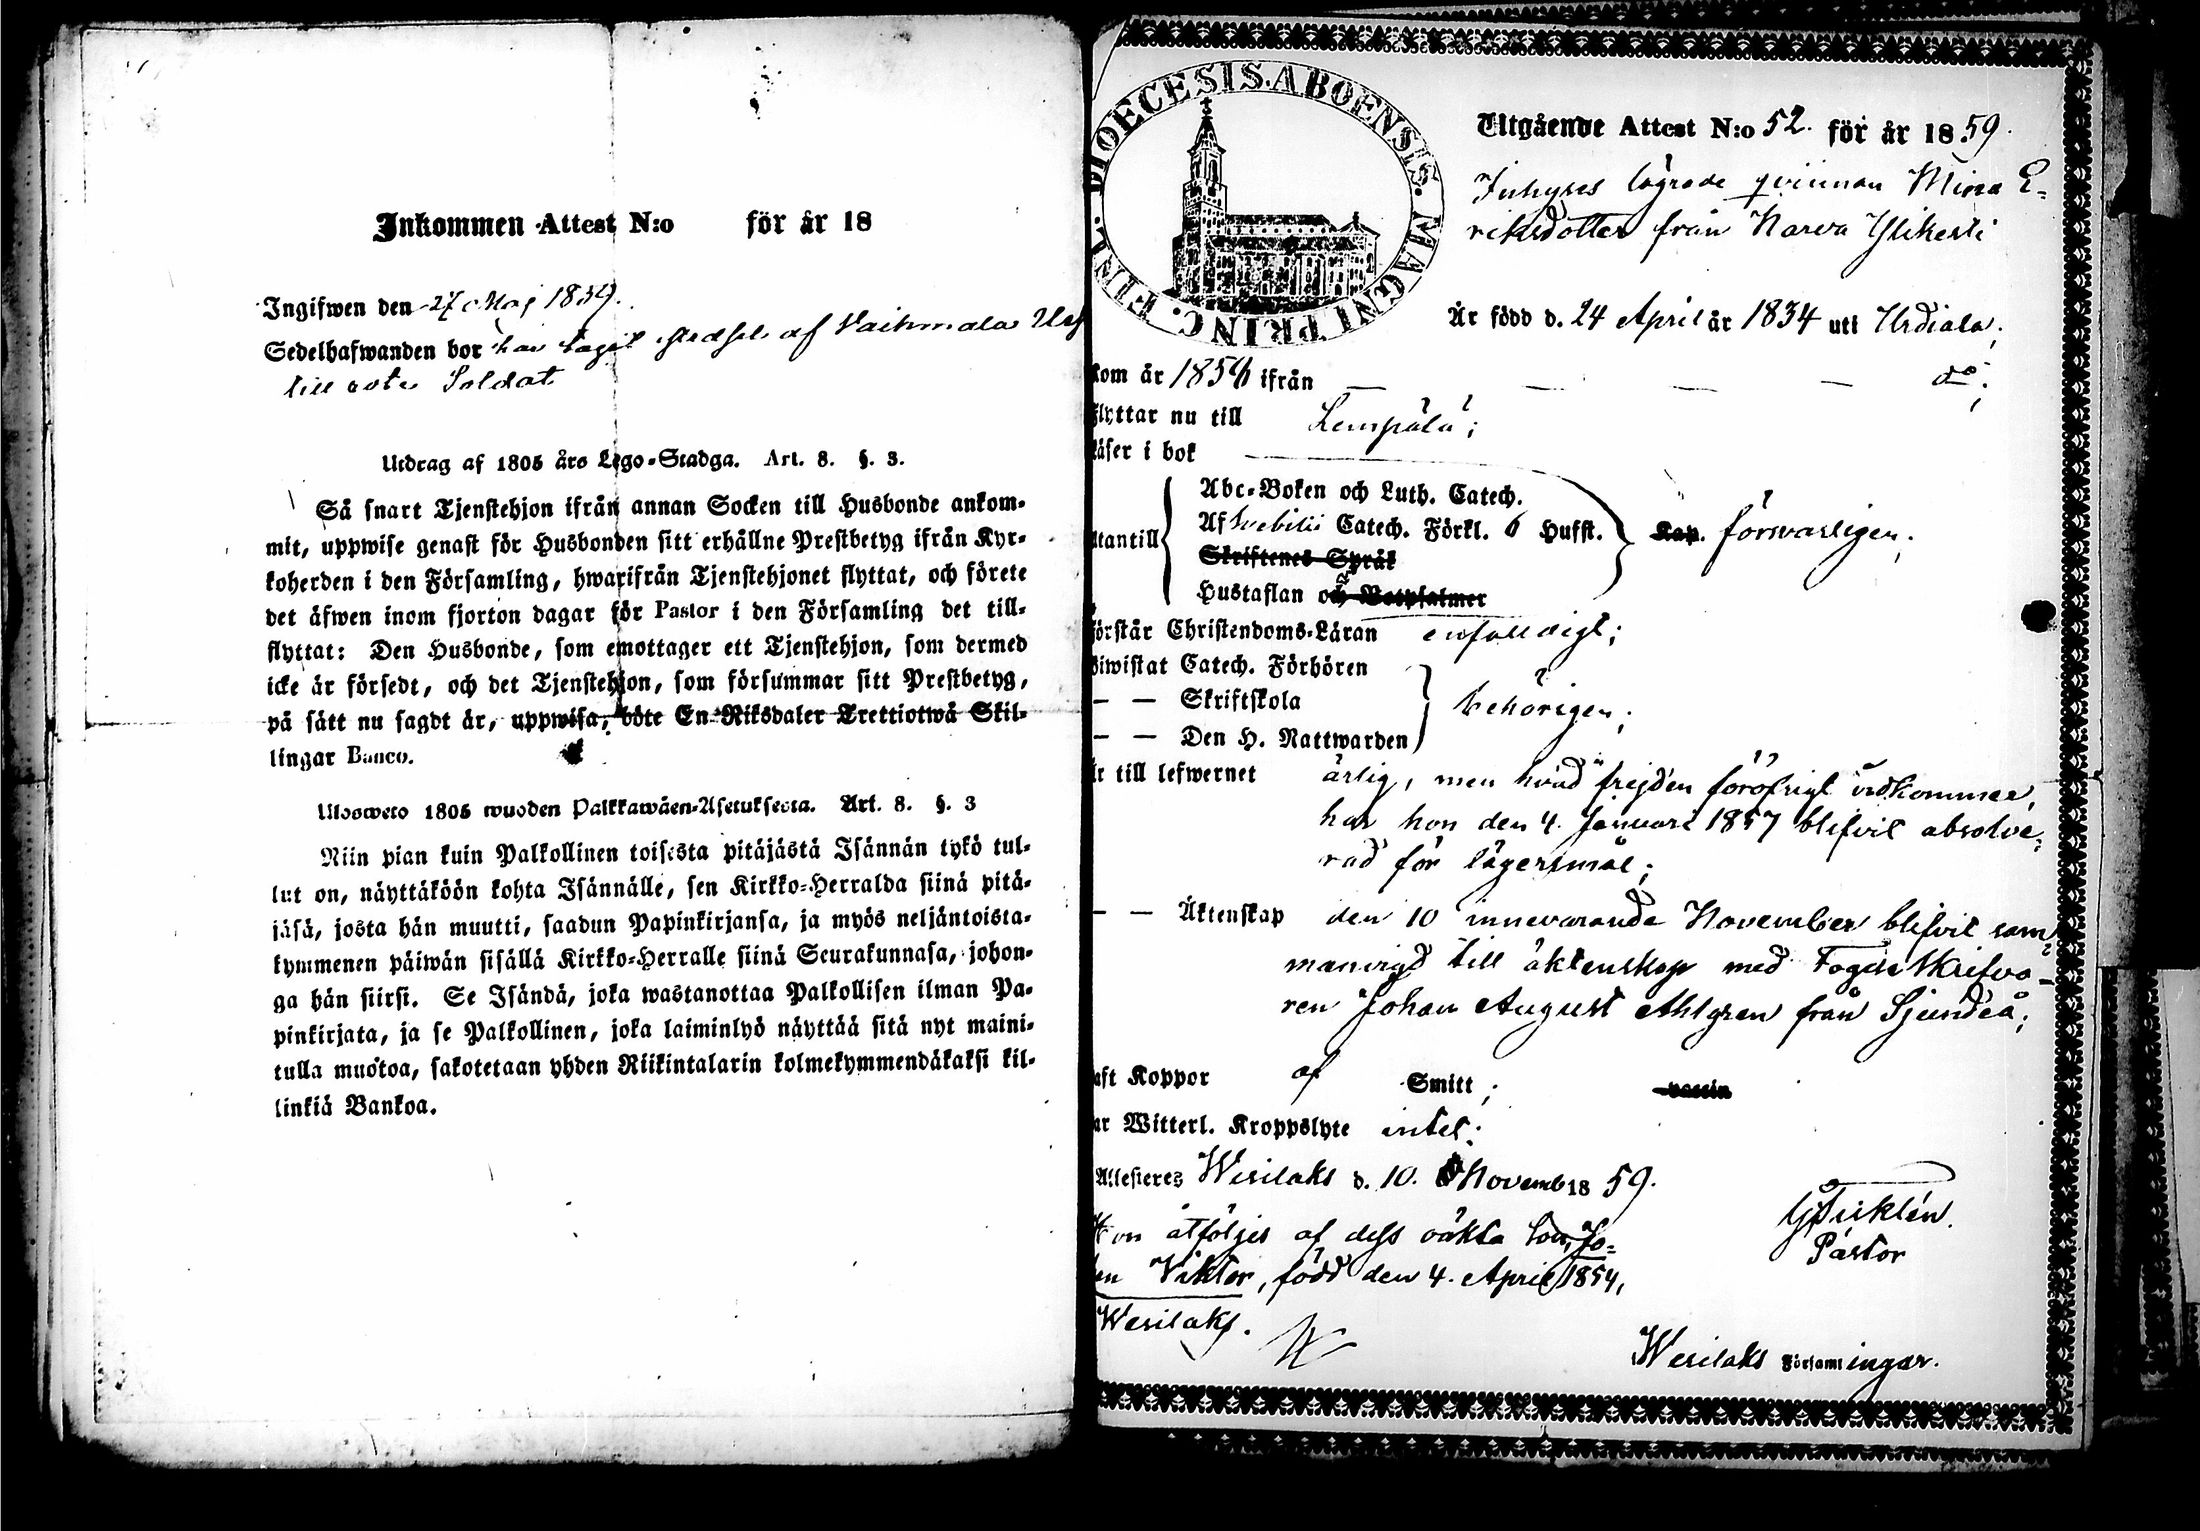 Inkommen Attest N:o för år 18
Ingifwen den 27 Maj 1859.
Sedelhafwanden bor har tagit af Vaihmala
till rote Soldat
Utdrag af 1805 års Lego-Stadga. Art. 8. §. 3.
Så snart Tjenstehjon ifrån annan Socken till Husbonde ankom-
mit, uppwise genast för Husbonden sitt erhållne Prestbetyg ifrån Kyr-
koherden i den Församling, hwarifrån Tjenstehjonet flyttat, och förete
det äfwen inom fjorton dagar för Pastor i den Församling det till-
flyttat: Den Husbonde, som emottager ett Tjenstehjon, som dermed
icke är försedt, och det Tjenstehjon, som försummar sitt Prestbetyg,
på sätt nu sagdt är, uppwisa, böte En Riksdaler Trettiotwå Skil-
lingar Banco.
Ulosweto 1805 wuoden Palkkawäen-Asetuksesta. Art. 8. §. 3
Niin pian kuin Palkollinen toisesta pitäjästä Isännän tykö tul-
lut on, näyttäköön kohta Isännälle, sen Kirkko-Herralda siinä pitä-
jäsä, josta hän muutti, saadun Papinkirjansa, ja myös neljäntoista-
kymmenen päiwän sisällä Kirkko-Herralle siinä Seurakunnasa, johon-
ga hän siirsi. Se Isändä, joka wastanottaa Palkollisen ilman Pa-
pinkirjata, ja se Palkollinen, joka laiminlyö näyttää sitä nyt maini-
tulla muotoa, sakotetaan yhden Riikintalarin kolmekymmendäkaksi kil-
linkiä Bankoa.
DIOECESIS ABOENSIS. MAGNI PRINC. FINL.
Utgående Attest N:o 52. för år 1859.
Inhyses lägrade qvinnan Mina E-
riksdotter från Narva Ylikesti
Är född d. 24 April år 1834 uti Urdiala;
kom år 1856 ifrån — — — — do;
flyttar nu till Lempälä;
läser i bok
Abc-Boken och Luth. Catech.
Af Svebilii Catech. Förkl. 6 Hufst.
utantill Kap. försvarligen;
Skriftenes Språk
Hustaflan och Botpsalmer
förstår Christendoms-Läran enfalldigt;
biwistat Catech. Förhören
— — Skriftskola behörigen;
— — Den H. Nattwarden
är till lefwernet ärlig, men hvad frejden föröfrigt vidkommer,
har hon den 4. Januari 1857 blifvit absolve-
rad för lägersmål;
— — Äktenskap den 10 innevarande November blifvit sam-
manvigd till äktenskap med Fogdeskrifva-
ren Johan August Ahlgren från Sjundeå;
haft Koppor af Smitt; vaccin
har Witterl. Kroppslyte intet;
Attesteres Wesilaks d. 10. Novemb 1859.
Hon åtföljes af dess oäkta son, Jo-
han Viktor, född den 4. April 1854,
Pastor
Wesilaks.
Wesilaks Församlingar.